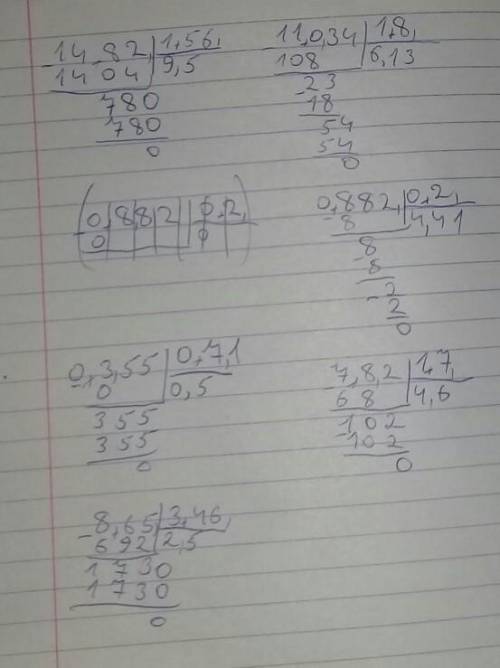 14 82, | 1,56,
1404 | 9,5
780
780
0
11,0,34 | 1,8,
108 | 6,13
23
18
54
54
0
(0,882 | 0,2,)
0
0,882, | 0,2,
8 | 4,41
8
8
2
2
0
0,3,55 | 0,7,1
0 | 0,5
355
355
0
7,8,2 | 1,7,
68 | 4,6
102
102
0
8,65, | 3,46,
692 | 2,5
1730
1730
0